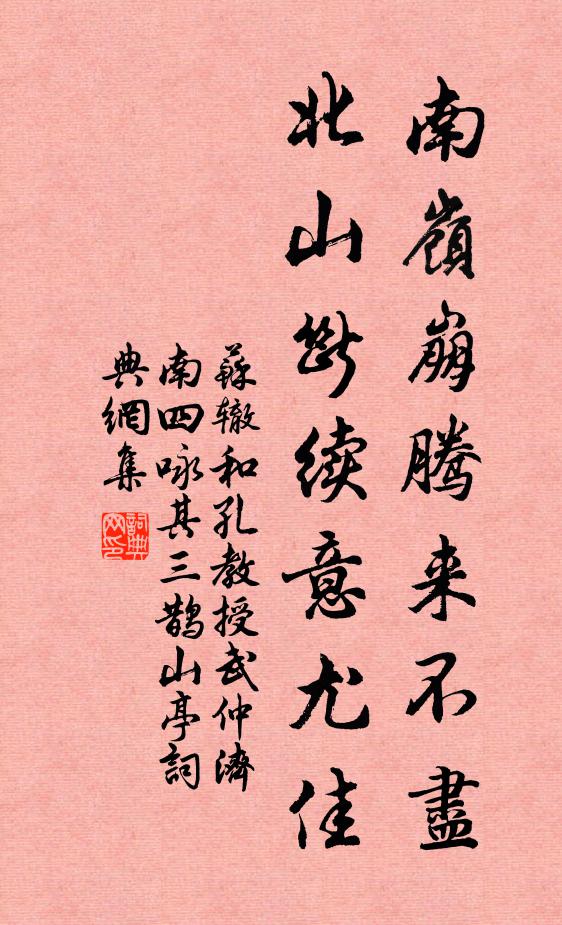 南嶺崩騰来不盡
北山斷续意尤佳
蘇辙和孔教授武仲濟
南四咏其三鹊山亭詞
典網集
詞典
网印